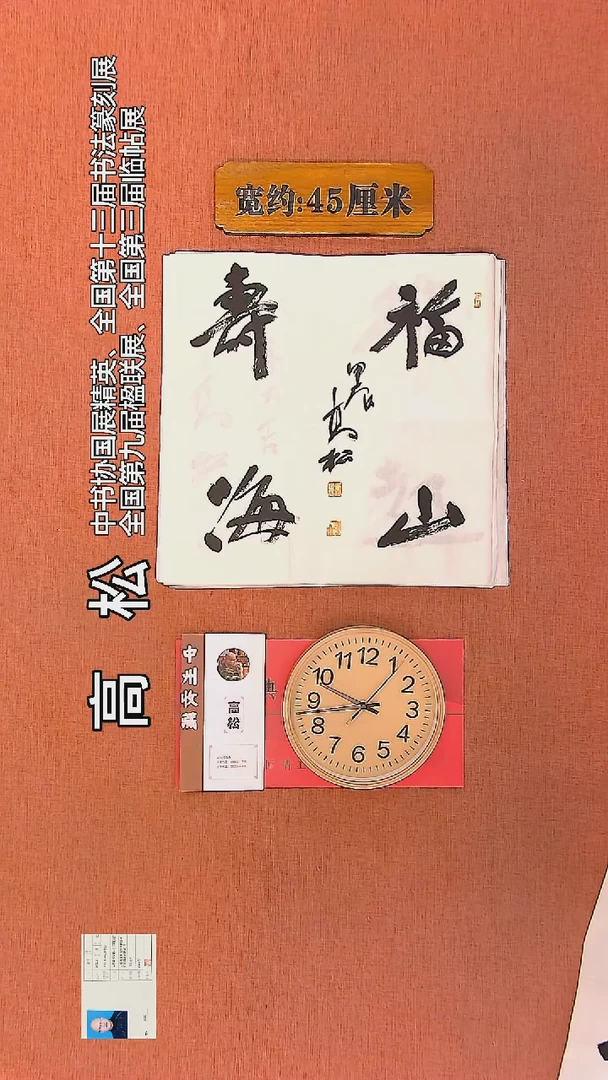 高 松
中书协国展精英、全国第十三届书法篆刻展
全国第九届楹联展、全国第三届临帖展
宽约:45厘米
福山
壽海
高松
高松
12
1
2
3
4
5
6
7
8
9
10
11